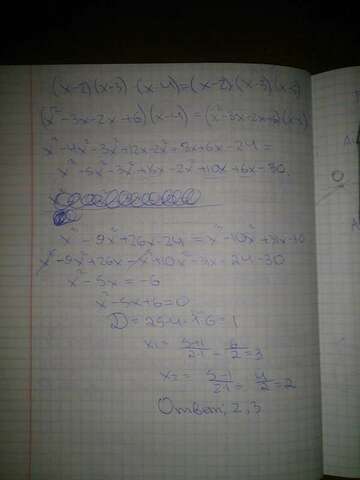 (x-2)(x-3)(x-4)=(x-2)(x-3)(x-5)
(x²-3x-2x+6)(x-4)=(x²-3x-2x+6)(x-5)
x³-4x²-3x²+12x-2x²+8x+6x-24=
x³-5x²-3x²+15x-2x²+10x+6x-30
x³-9x²+26x-24=x³-10x²+31x-30
x³-9x²+26x-x³+10x²-31x=24-30
x²-5x=-6
x²-5x+6=0
D=25-4·1·6=1
x₁=5+1/2·1=6/2=3
x₂=5-1/2·1=4/2=2
Ответ; 2, 3